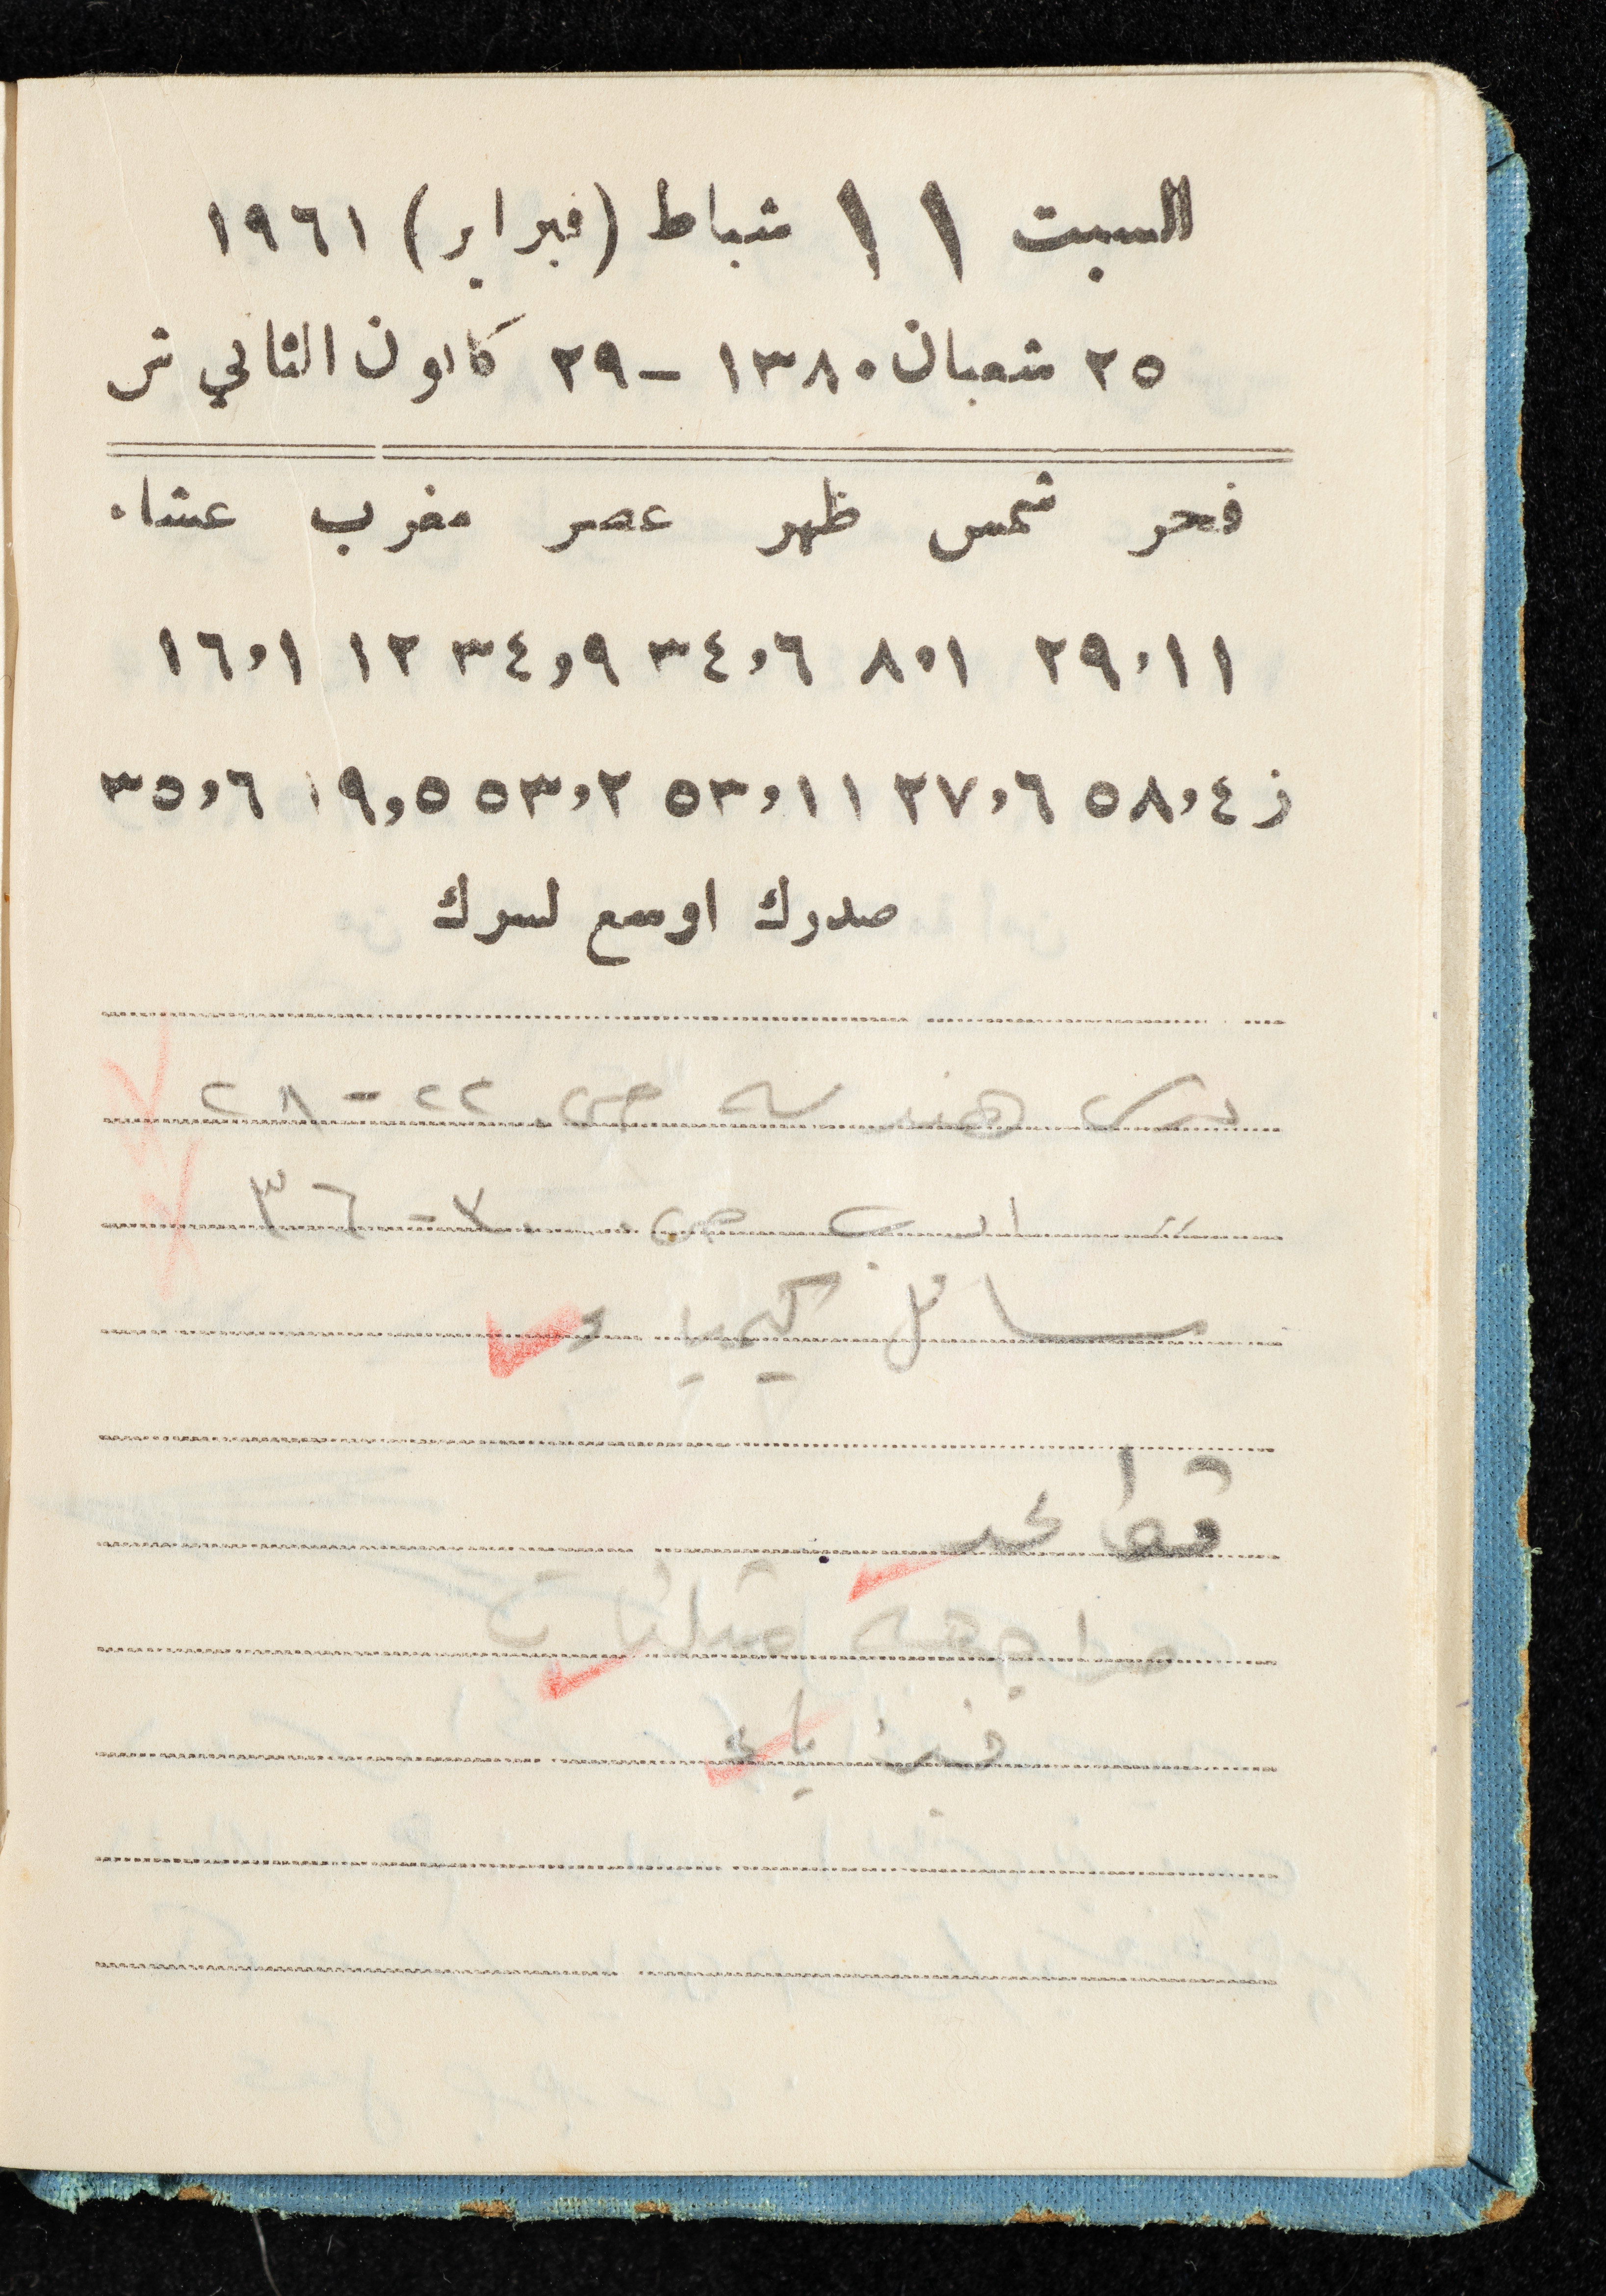 السبت ١١ شباط (فبراير) ١٩٦١
٢٥ شعبان ١٣٨٠ – ٢٩ كانون الثاني ش
فجر شمس ظهر عصر مغرب عشاء
٢٩،١١ ٨،١ ٣٤،٦ ٣٤،٩ ١٢ ١٦،١
ز ٥٨،٤ ٢٧،٦ ٥٣،١١ ٥٣،٢ ١٩،٥ ٣٥،٦
صدرك اوسع لسرك
درس هندسة ص ٢٢ - ٢٨
〃 ادب ص ٧ - ٣٦
مسائل كيمياء
مراجعة مثلثات
فيزياء